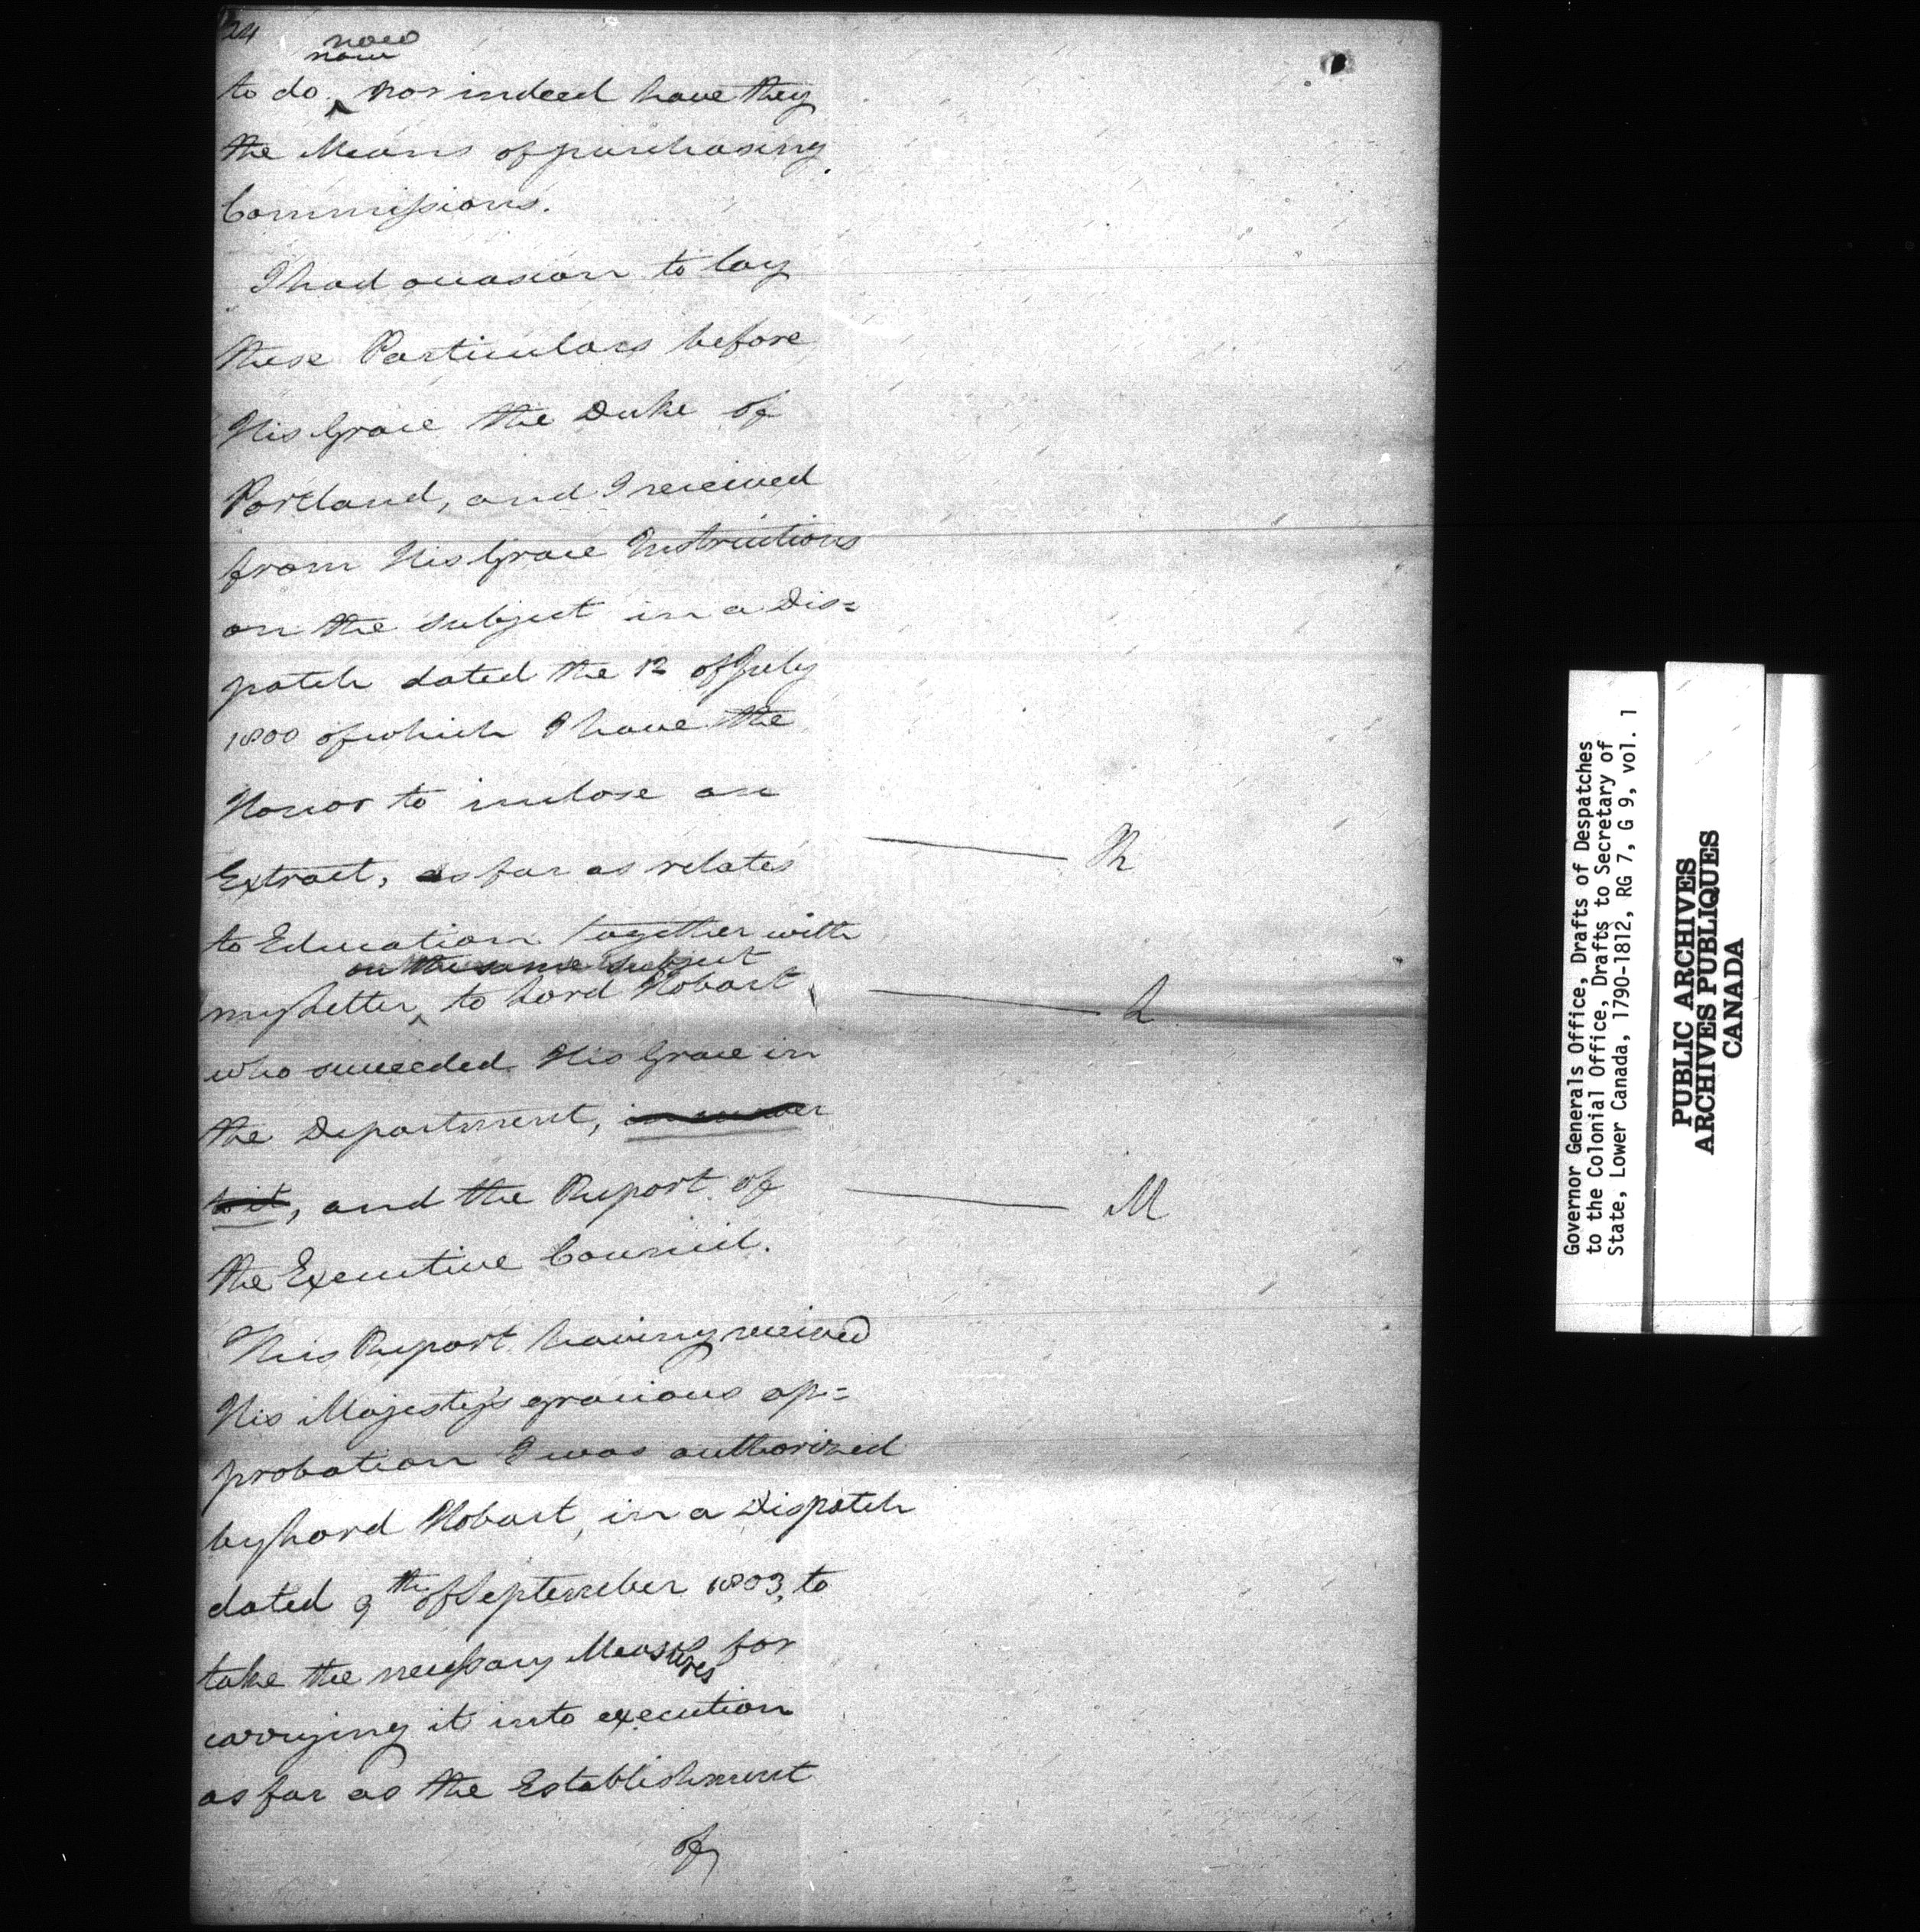 24
now
now
to do ‸ nor indeed have they
the Means of purchasing
Commissions.
I had occasion to lay
these Particulars before
His Grace the Duke of
Portland, and I received
from His Grace Instructions
on the subject in a Dis=
patch dated the 12 of July
1800 of which I have the
Honor to inclose an
Extract, as far as relates
to Education together with
on the same subject
my Letter ‸ to Lord Hobart,
who succeeded His Grace in
the Department, in answer
to it, and the Report of
the Executive Council.
This Report having received
His Majesty's gracious ap=
probation I was authorized
by Lord Hobart, in a Dispatch
dated 9th of September 1803, to
take the necessary Measures for
carrying it into execution
as far as the Establishment
of
L
M
Governor Generals Office, Drafts of Despatches
to the Colonial Office, Drafts to Secretary of
State, Lower Canada, 1790-1812, RG 7, G 9, vol. 1
PUBLIC ARCHIVES
ARCHIVES PUBLIQUES
CANADA